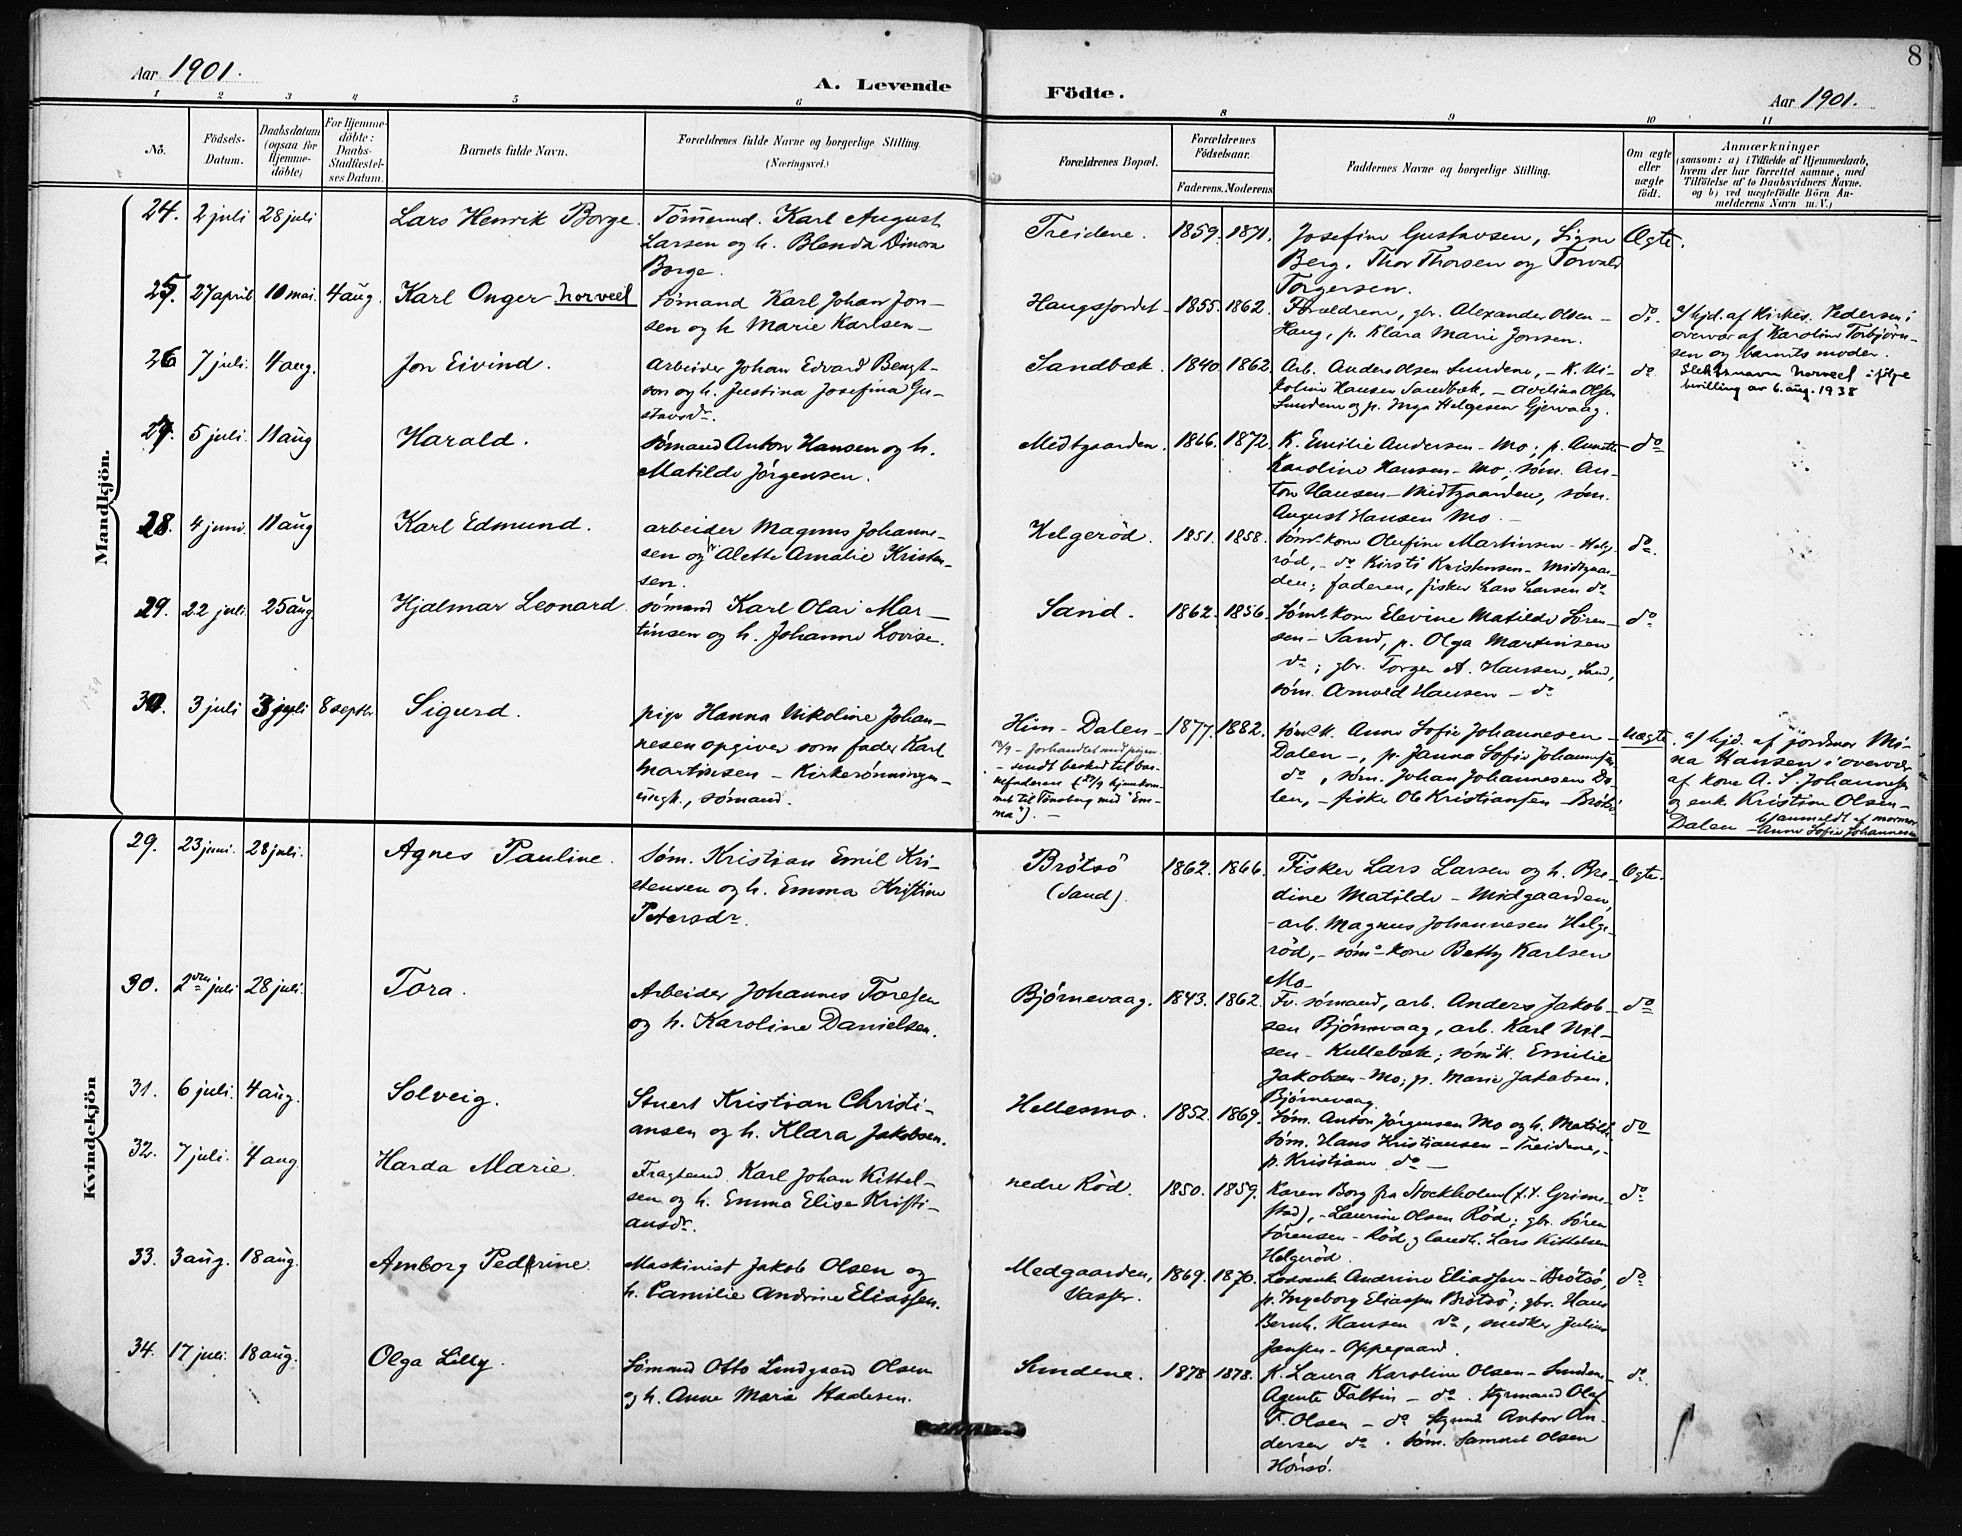 Aar 1901.
A. Levende
Födte.
Aar 1901.
8
1 2 3 4 5 6 8 9 10 11
No.
Födsels-
Datum.
Daabsdatum
(ogsaa for
Hjemme-
döbte)
For Hjemme-
döbte:
Daabs-
Stadfæstel-
ses Datum.
Barnets fulde Navn.
Forældrenes fulde Navne og borgerlige Stilling.
(Næringsvei.)
Forældrenes Bopæl.
Forældrenes
Födselsaar.
Faderens. Moderens
Faddernes Navne og borgerlige Stilling.
Om ægte
eller
uægte
födt.
Anmærkninger
(saasom: a) i Tilfælde af Hjemmedaab,
hvem der har forrettet samme, med
Tilföielse af to Daabsvidners Navne.
og b) ved uægtefödte Börn An-
melderens Navn m. V.)
Mandkjön.
24. 2 juli 28 juli Lars Henrik Borge.
Karl August
Larsen og h. Blenda Dinora
Borge.
Treidene. 1859. 1871.
Josefine Gustavsen, Signe
Berg, Thor Thorsen og Torvald
Torgersen.
Ægte.
25. 27 april 10 mai. 4 aug. Karl Onger Norveel
Sømand Karl Johan Jon-
sen og h. Marie Karlsen-
Haugsjordet- 1855. 1862.
Forældrene, gbr. Alexander Olsen-
Haug, p. Klara Marie Jonsen.
do.
af Kirkes. Pedersen i
overvær af Karoline Torbjørn-
sen og barnets moder.
Slektsnavn Norveel i følge
bevilling av 6. aug. 1938
26 7 juli. 4 aug. Jon Eivind.
Arbeider Johan Edvard Bengt-
son og h. Justina Josefina Gu-
stavsdr.
Sandbæk. 1840 1862.
Arb. Anders Olsen Sundene, - K. Ni-
koline Hansen Sandbæk, - Avelina Olsen
Sundene og p. Inga Helgesen Gjervaag.
do
27. 5 juli. 11 aug Harald.
Sømand Anton Hansen og h.
Matilde Jørgensen.
Medtgaarden. 1866. 1872.
K. Emilie Andersen - Mo; p. Annette
Karoline Hansen - Mo, søm. An-
ton Hansen - Midtgaarden, søm.
August Hansen Mo.-
do
28. 4 juni. 11 aug Karl Edmund.
arbeider Magnus Johanne-
sen og h. Alette Amalie Kristen-
sen.
Helgeröd. 1851. 1858.
Søms. kone Olufine Martinsen - Helge-
röd, - do Kirsti Kristensen - Midtgaar-
den; faderen, fisker Lars Larsen do
do.
29. 22 juli. 25 aug. Hjalmar Leonard.
Sømand Karl Olai Mar-
tinsen og h. Johanne Lovise.
Sand. 1862. 1856.
Søms. kone Elevine Matilde Søren-
sen - Sand, p. Olga Martinsen
do; gbr. Torger A. Hansen, Sand,
søm. Arnold Hansen - do
do
30. 3 juli 3 juli 8 septbr Sigurd.
pige Hanna Nikoline Johan-
nesen opgiver som fader Karl
Martinsen - Kirkerønningen-
ungk., sømand.
Hun - Dalen-
- Forhandlet med pigen.
- sendt besked til bar-
nefaderen (27/9 hjemkom-
met til Tønsberg med "Em-
ma").-
1877. 1882.
sømsk. Anne Sofie Johannesen-
Dalen -, p. Janna Sofie Johannesen
do, søm. Johan Johannesen Da-
len, - fisker Ole Kristiansen - Brötsö
Uægte.
af hjd. af jordmor Mi-
na Hansen i overvær
af kone A. S. Johannesen
og enk. Kristine Olsen-
Dalen - anmeldt af mormor
Anne Sofie Johannesen
Kvindekjön
29. 23 juni. 28 juli. Agnes Pauline.
Søm. Kristian Emil Kri-
stensen og h. Emma Kristine
Petersdr.
Brötsö
(Sand).
1862. 1866.
Fisker Lars Larsen og h. Bre-
dine Matilde - Midgaarden,
- arb. Magnus Johannesen Helge-
röd, - søms kone Betty Karlsen
Mo-
Ægte.
30. 2den juli 28 juli. Tora.
Arbeider Johannes Toresen
og h. Karoline Danielsen.
Bjørnevaag. 1843. 1862.
Fv. sømand, arb. Anders Jakob-
sen Bjørnevaag, arb. Karl Nil-
sen - Kullebæk; sømsk. Emilie
Jakobsen - Mo; p. Marie Jakobsen.
Bjørnevaag
do
31. 6 juli. 4 aug. Solveig.
Stuert Kristian Christi-
ansen og h. Klara Jakobsen.
Hellesmo. 1852. 1869.
Søm. Anton Jørgensen Mo og h. Matilde
Søm. Hans Kristiansen - Treidene, -
p. Kristiane do -
do
32. 7 juli. 4 aug. Harda Marie.
Karl Johan Kittel-
sen og h. Emma Elise Kristi-
ansdr.
nedre Röd. 1850. 1859.
Karen Borg fra Stockholm (f.t. Grime-
stad), - Laurine Olsen Röd; gbr. Søren
Sørensen - Röd, Lars Kittelsen
Helgeröd.
do
33. 3 aug. 18 aug. Amborg Pedrine.
Maskinist Jakob Olsen og
h. Pamilie Andrine Eliassen.
Medgaarden,
Vasser.
1869. 1870.
Andrine Eliassen - Brötsö,
p. Ingeborg Eliassen Brötsö; gbr. Hans
Bernh. Hansen do, snedker Julius
Jansen - Oppegaard.
do
34. 17 juli. 18 aug. Olga Lilly.
Sømand Otto Lindgaard Olsen
og h. Anne Marie Haadesen.
Sundene. 1878 1878.
K. Laura Karoline Olsen - Sundene-
Agente Faltin - do. Styrmand Olaf
F. Olsen - do Anton An-
dersen do. søm. Samuel Olsen
Hönsö.
do